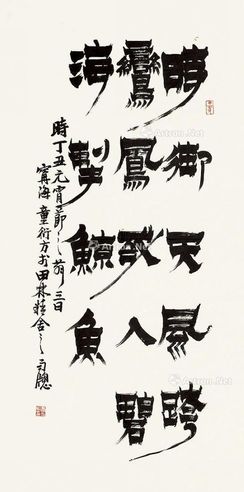 時御天風跨
鸞鳳或入碧
海掣鯨魚
時丁丑元宵節之前三日
寧海童衍方於田林精舍之南窗
Artron.Net